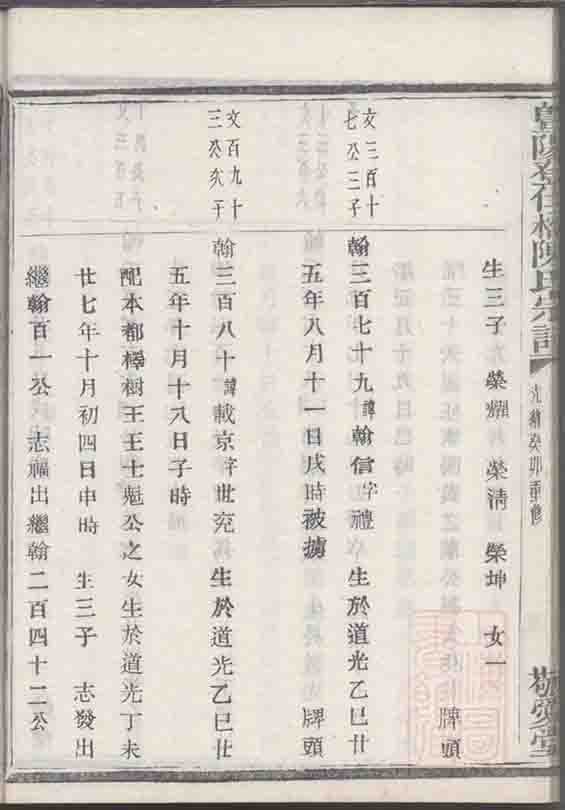 陽 在橋陳氏宗譜 光緒癸卯重修 敬愛堂
生三子 榮耀 榮淸 榮坤 女一
牌頭
文三百十
七公三子
翰三百七十九諱翰信字禮 生於道光乙巳廿
五年八月十一日戌時被擄 牌頭
文百九十
三公次子
翰三百八十諱載京字世兗 生於道光乙巳廿
五年十月十八日子時
配本都檡樹王王士魁公之女生於道光丁未
廿七年十月初四日申時 生三子 志發出
繼翰百一公 志福出繼翰二百四十二公